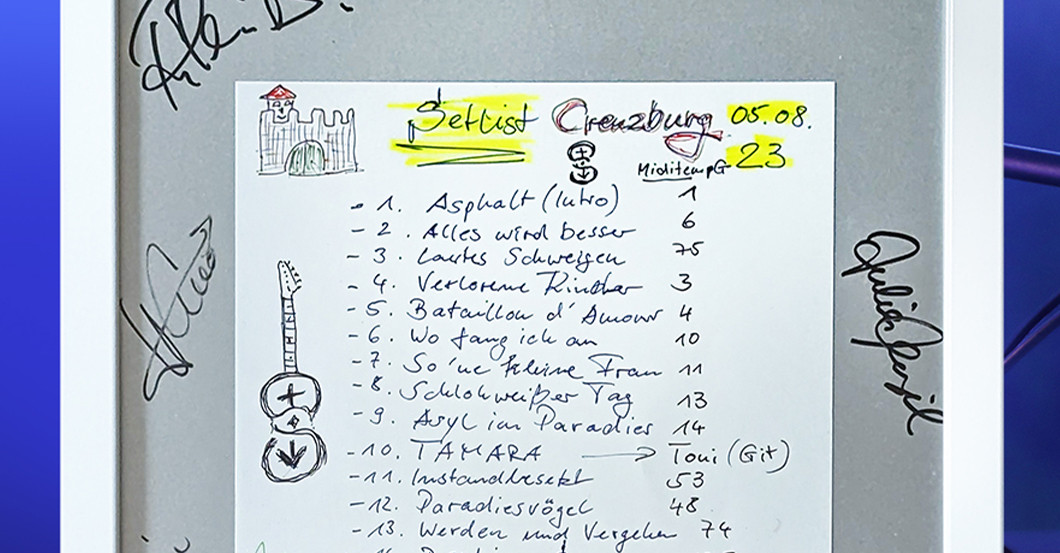 Setlist Creuzburg 05.08.
23
MiditempG
- 1. Asphalt (Intro) 1
- 2. Alles wird besser 6
- 3. Lautes Schweigen 75
- 4. Verlorene Kinder 3
- 5. Bataillon d'Amour 4
- 6. Wo fang ich an 10
- 7. So'ne kleine Frau 11
- 8. Schlohweißer Tag 13
- 9. Asyl im Paradies 14
- 10. TAMARA → Toni (Git)
- 11. Instandbesetzt 53
- 12. Paradiesvögel 48
- 13. Werden und Vergehen 74